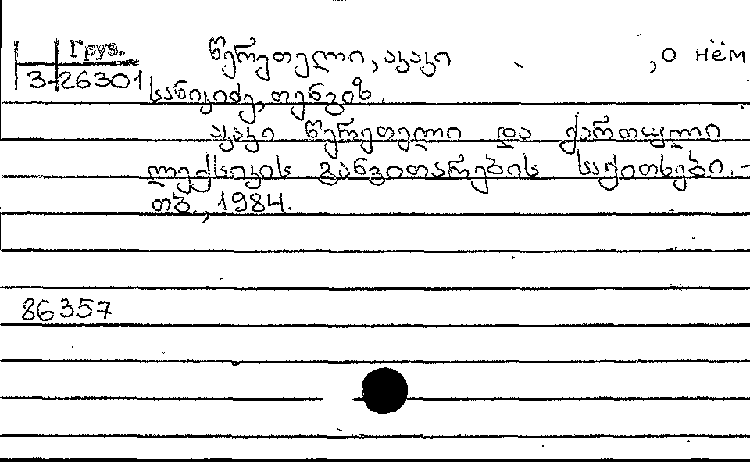 Груз. წერეთელი, აკაკი , о нём
3-26301 სანიკიძე, თენგიზ.
აკაკი წერეთელი და ქართული
ლექსიკის განვითარების საკითხები. -
თბ., 1984.
86357